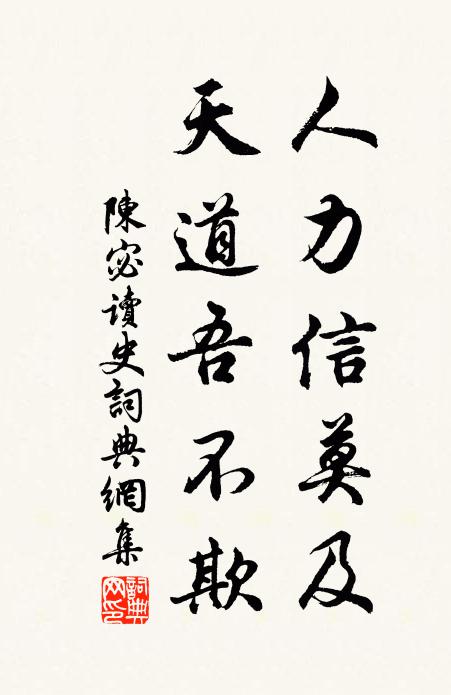 人力信莫及
天道吾不欺
陳宓讀史詞典網集
詞典网印